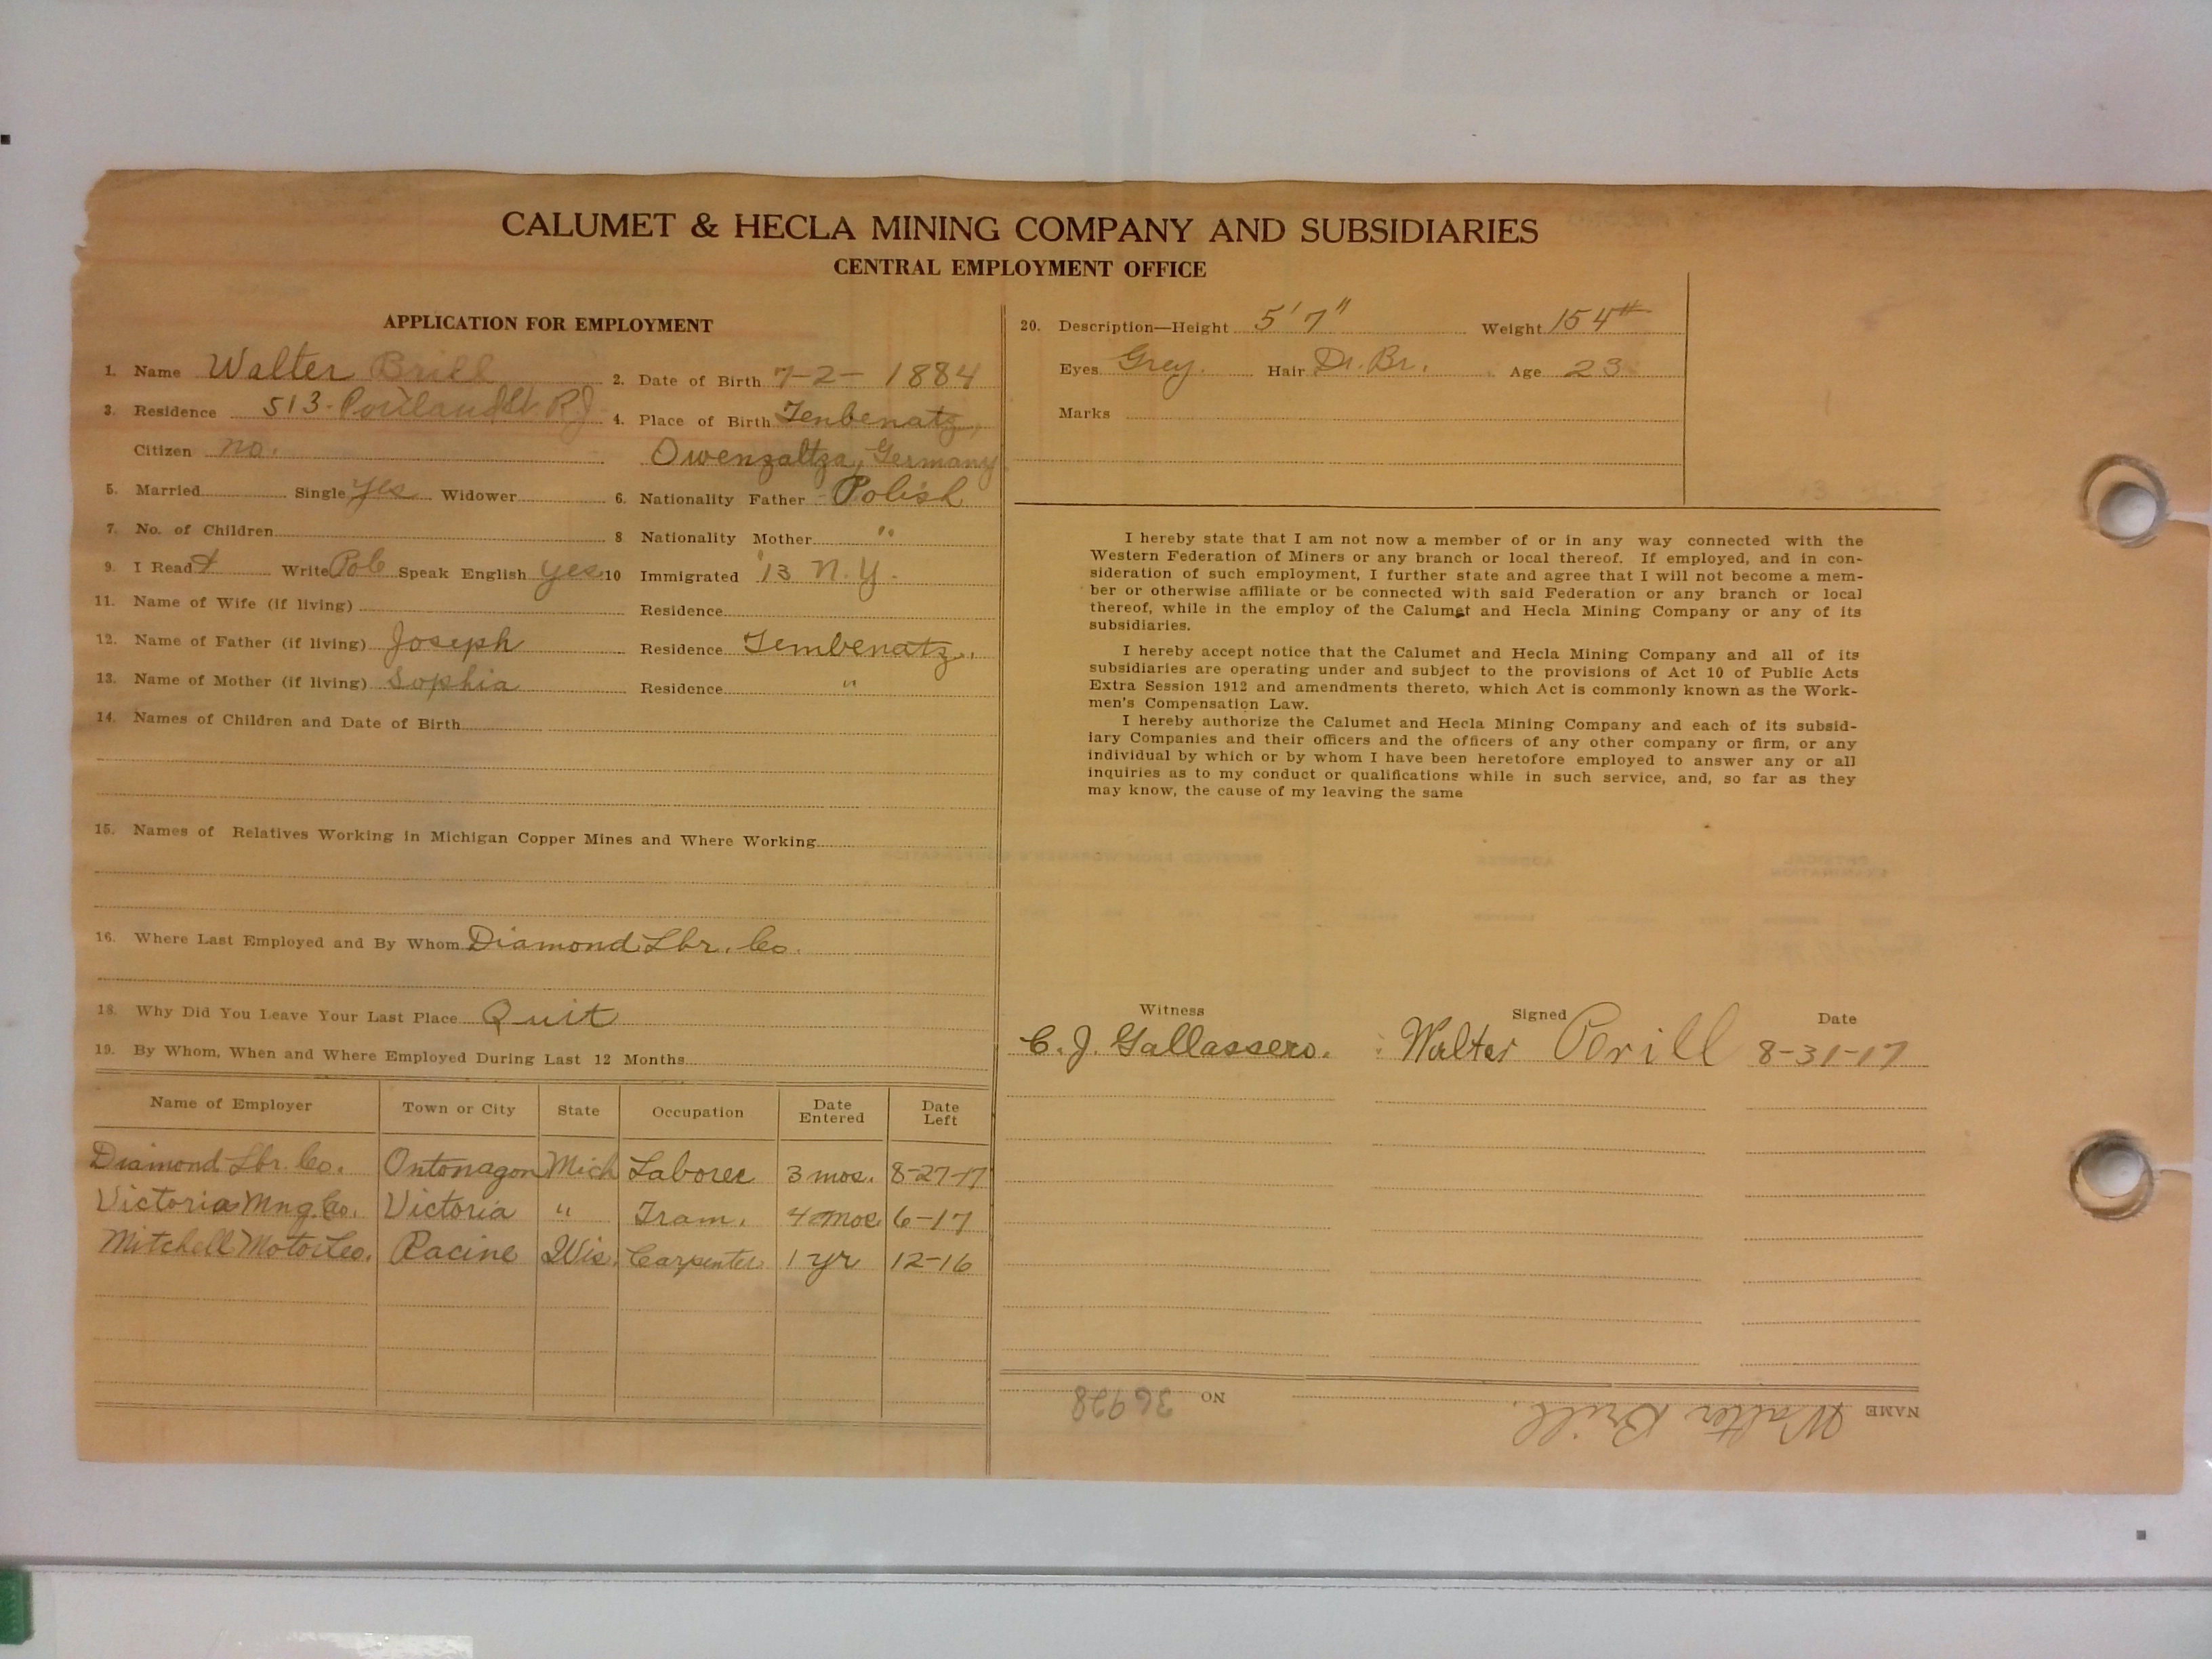 CALUMET & HECLA MINING COMPANY AND SUBSIDIARIES
CENTRAL EMPLOYMENT OFFICE
APPLICATION FOR EMPLOYMENT
1. Name Walter Brill
2. Date of Birth 7-2-1884
3. Residence 513-Portland St. R.J.
4. Place of Birth Tenbenatz,
Citizen no.
Owenzaltza, Germany
5. Married Single yes Widower
6. Nationality Father Polish
7. No. of Children
8 Nationality Mother "
9. I Read & Write Pol Speak English yes
10 Immigrated '13 N.Y.
11. Name of Wife (if living)
Residence
12. Name of Father (if living) Joseph
Residence Tembenatz.
13. Name of Mother (if living) Sophia
Residence "
14. Names of Children and Date of Birth
15. Names of Relatives Working in Michigan Copper Mines and Where Working
16. Where Last Employed and By Whom Diamond Lbr. Co.
18. Why Did You Leave Your Last Place Quit
19. By Whom, When and Where Employed During Last 12 Months
Name of Employer Town or City State Occupation Date Entered Date Left
Diamond Lbr. Co. Ontonagon Mich Laborer 3 mos. 8-27-17
Victoria Mng. Co. Victoria " Tram. 4 mos 6-17
Mitchell Motor Co. Racine Wis. Carpenter 1 yr 12-16
20. Description—Height 5'7" Weight 154#
Eyes Grey. Hair Dr. Br. Age 23
Marks
I hereby state that I am not now a member of or in any way connected with the
Western Federation of Miners or any branch or local thereof. If employed, and in con-
sideration of such employment, I further state and agree that I will not become a mem-
ber or otherwise affiliate or be connected with said Federation or any branch or local
thereof, while in the employ of the Calumet and Hecla Mining Company or any of its
subsidiaries.
I hereby accept notice that the Calumet and Hecla Mining Company and all of its
subsidiaries are operating under and subject to the provisions of Act 10 of Public Acts
Extra Session 1912 and amendments thereto, which Act is commonly known as the Work-
men's Compensation Law.
I hereby authorize the Calumet and Hecla Mining Company and each of its subsid-
iary Companies and their officers and the officers of any other company or firm, or any
individual by which or by whom I have been heretofore employed to answer any or all
inquiries as to my conduct or qualifications while in such service, and, so far as they
may know, the cause of my leaving the same
Witness Signed Date
C. J. Gallassero. Walter Brill 8-31-17
NAME Walter Brill. NO 36928